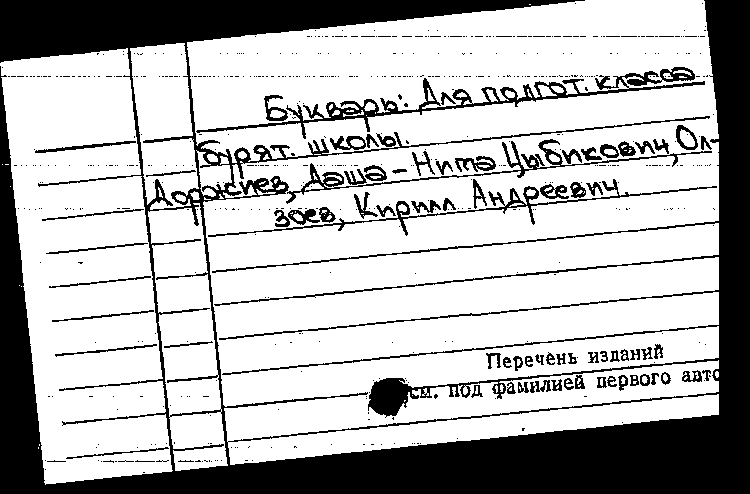 Букварь: Для подгот. класса
бурят. школы.
Доржиев, Даша-Нима Цыбикович, Ол-
зоев, Кирилл Андреевич.
Перечень изданий
см. под фамилией первого авто